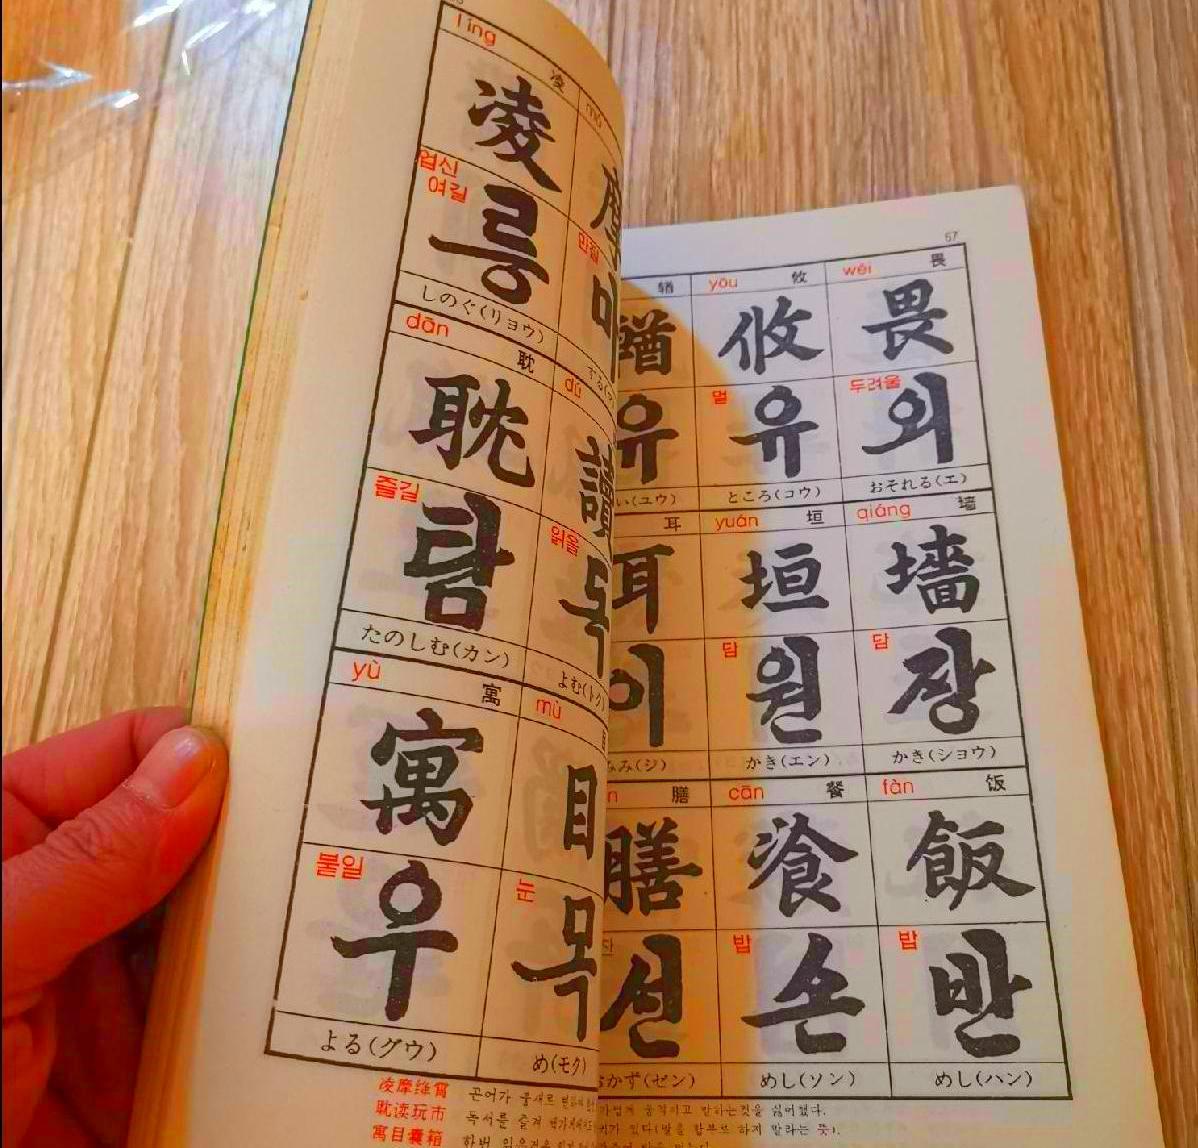 líng 凌
凌
업신
여길
릉
しのぐ(リョウ)
dān 耽
耽
즐길
탐
たのしむ(カン)
dú
讀
읽을
독
よむ(トク)
yù 寓
寓
붙일
우
よる(グウ)
mù
目
눈
목
め(モク)
凌摩绛霄
耽读玩市
寓目囊箱
독서를 즐겨
57
猶
유
い(ユウ)
yōu 攸
攸
멀
유
ところ(コウ)
wèi 畏
畏
두려울
외
おそれる(エ)
耳
耳
이
みみ(ジ)
yuán 垣
垣
담
원
かき(エン)
qiáng 墙
墻
담
장
かき(ショウ)
膳
膳
선
かず(ゼン)
cān 餐
飡
밥
손
めし(ソン)
fàn 饭
飯
밥
반
めし(ハン)
가 있다(말을 함부로 하지 말라는 뜻).